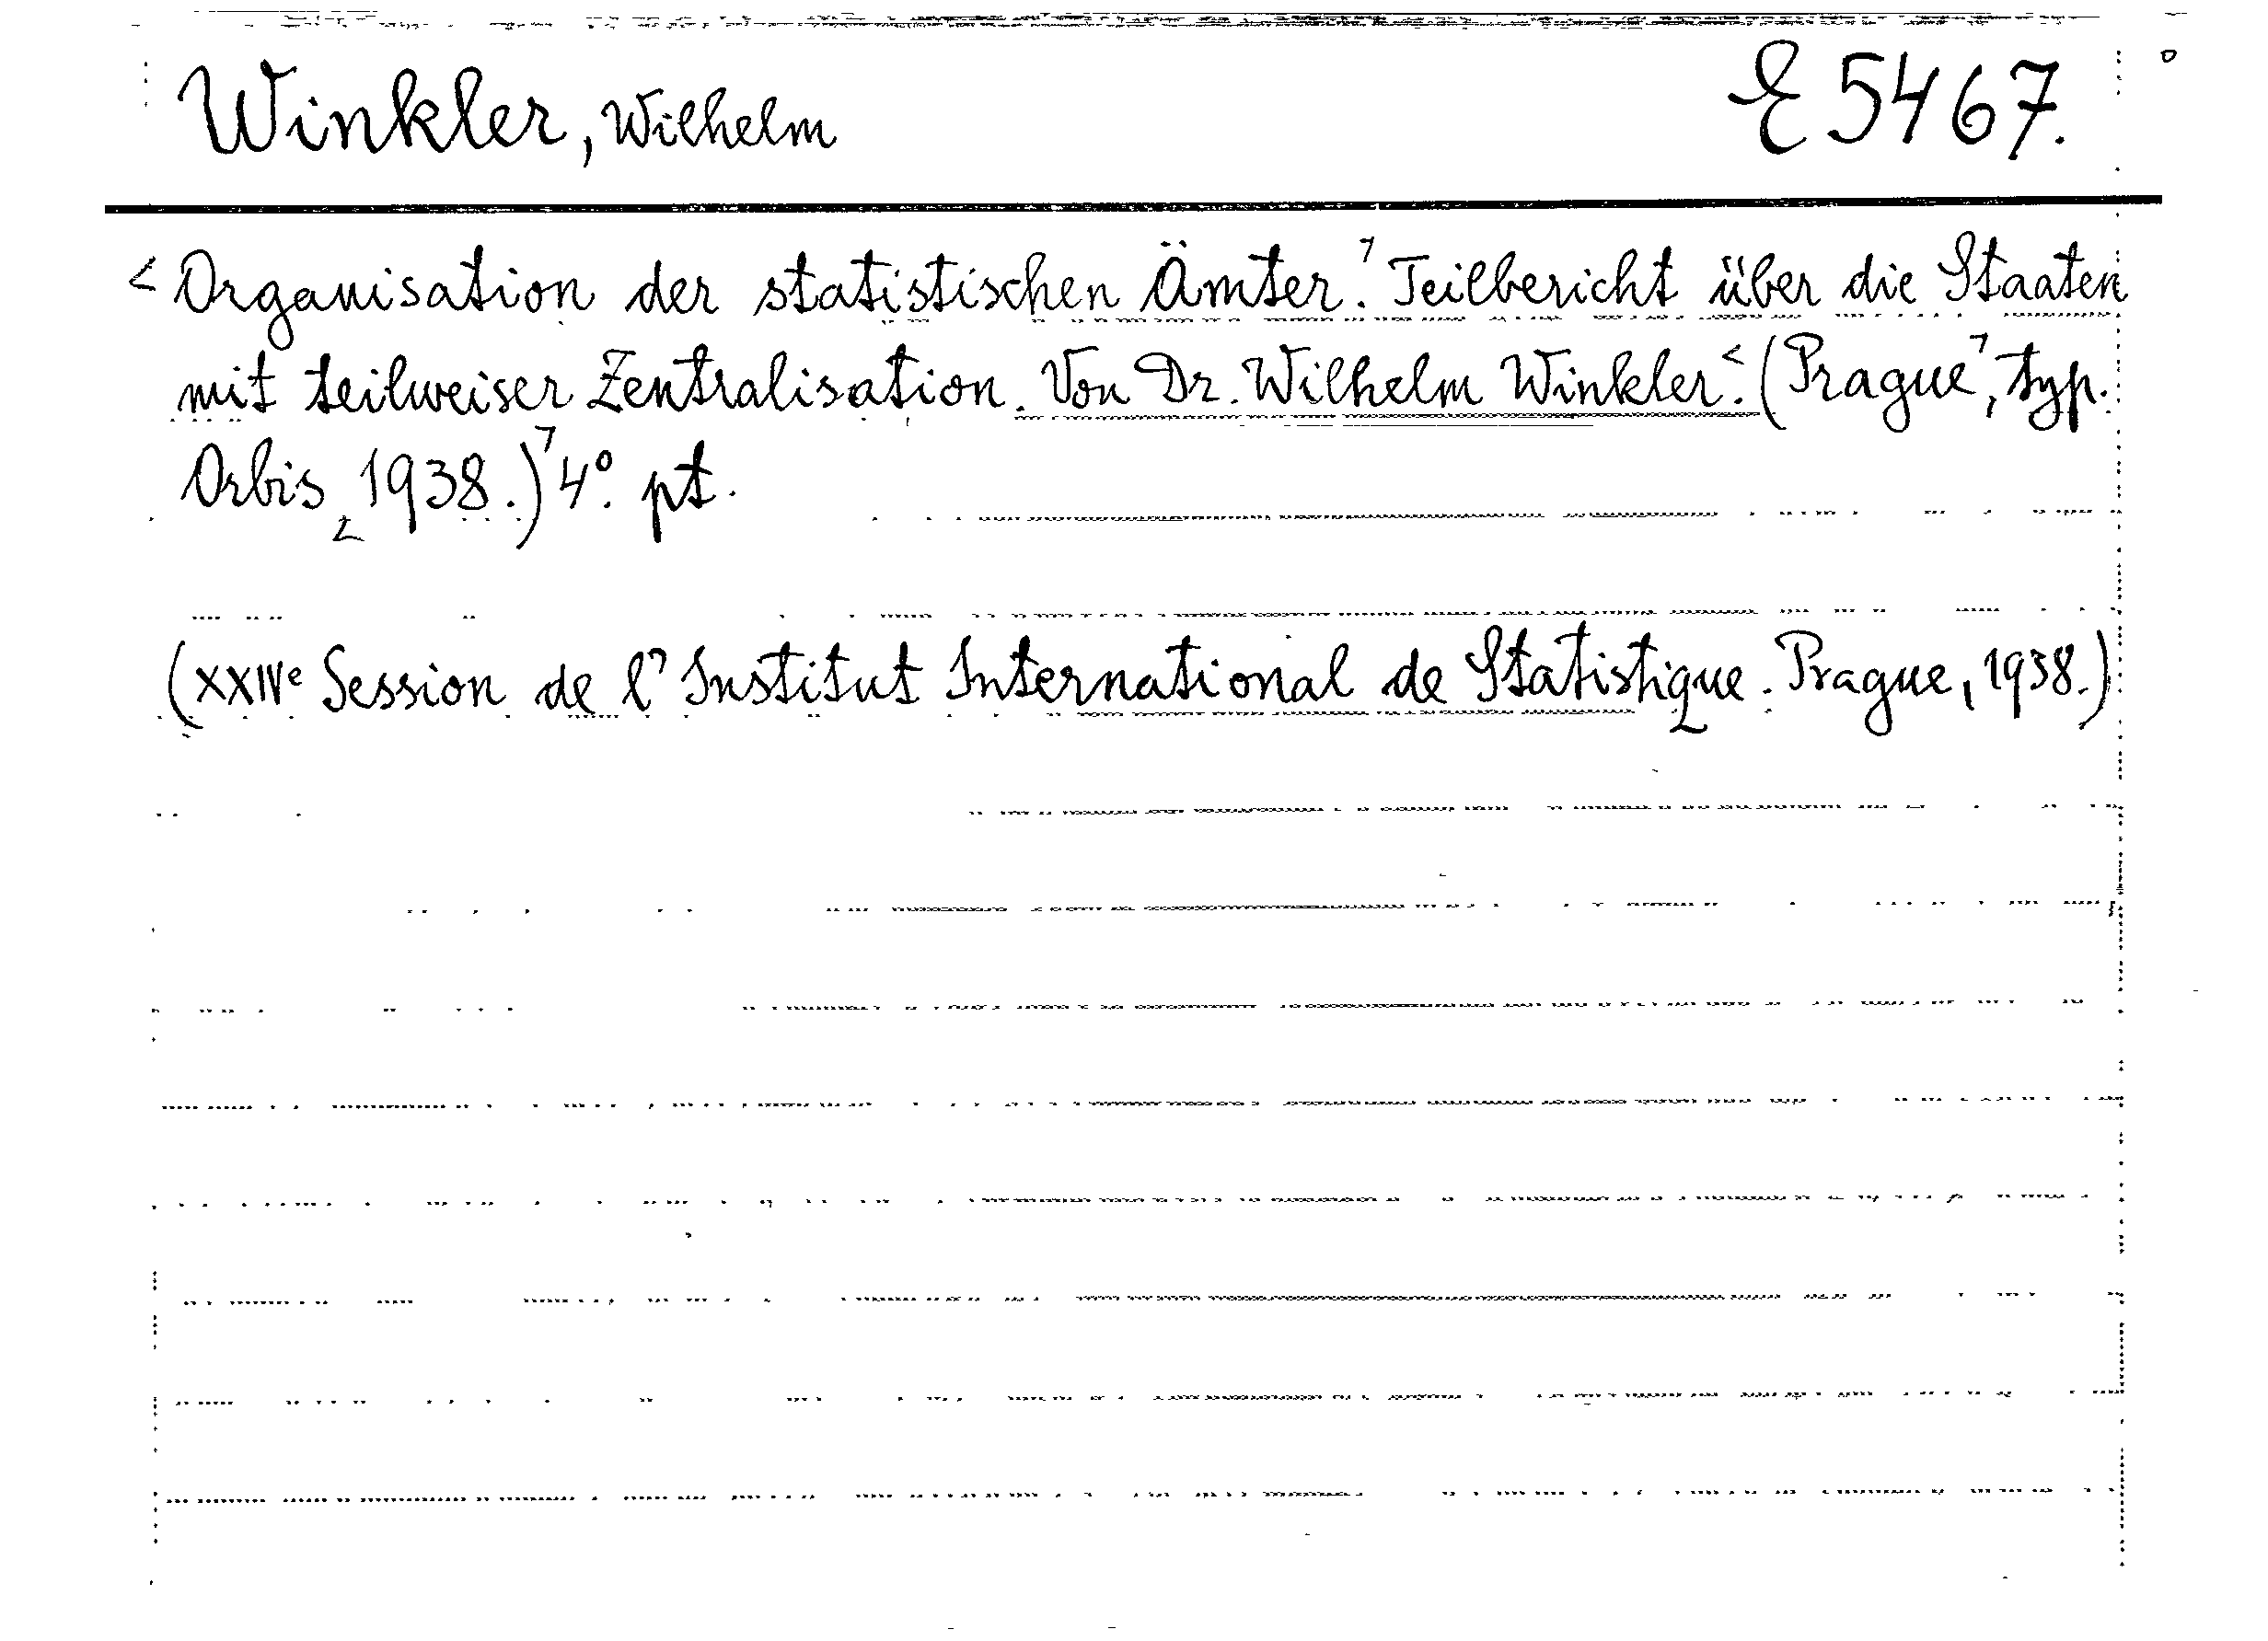 Winkler, Wilhelm E 5467.
<Organisation der statistischen Ämter.> Teilbericht über die Staaten
mit teilweiser Zentralisation. Von Dr. Wilhelm Winkler.<(Prague>, typ.
Orbis <1938.)> 4°. pt.
(XXIVe Session de l'Institut International de Statistique. Prague, 1938.)